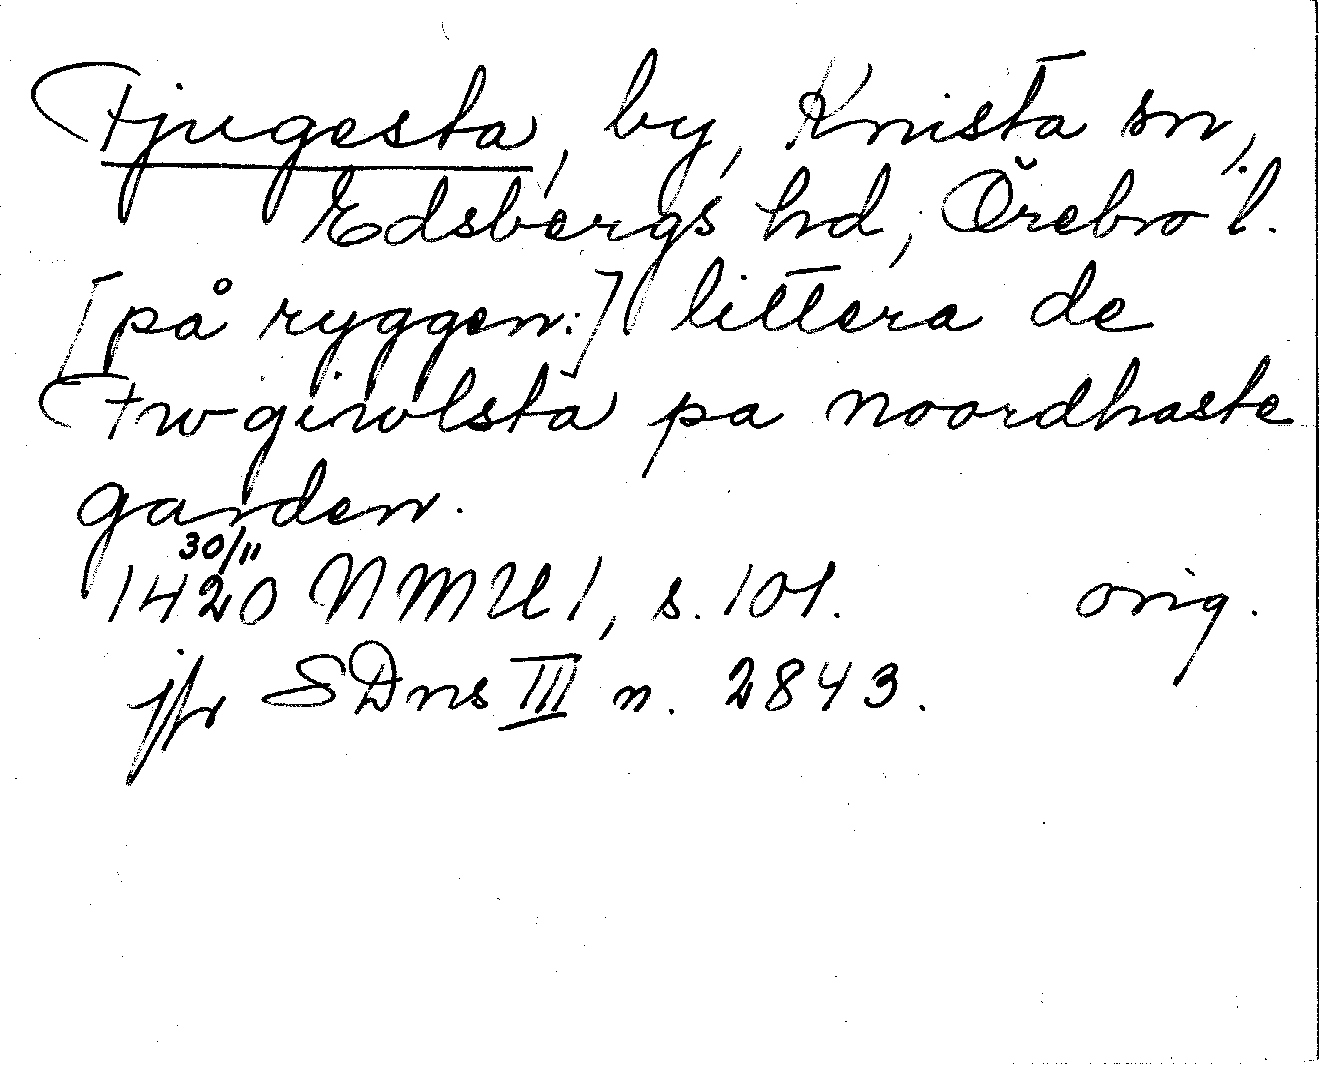 Fjugesta, by, Knista sn,
Edsbergs hd, Örebro l.
[på ryggen:] littera de
Fwgirwlsta pa noordhaste
garden.
30/11
1420 NMU 1, s. 101. orig.
jfr SDns III n. 2843.